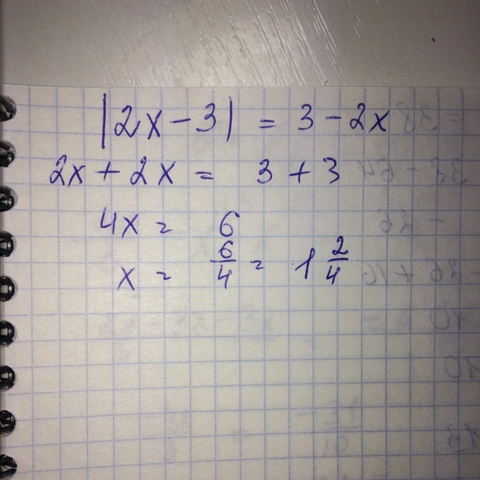 |2x - 3| = 3 - 2x
2x + 2x = 3 + 3
4x = 6
x = 6/4 = 1 2/4